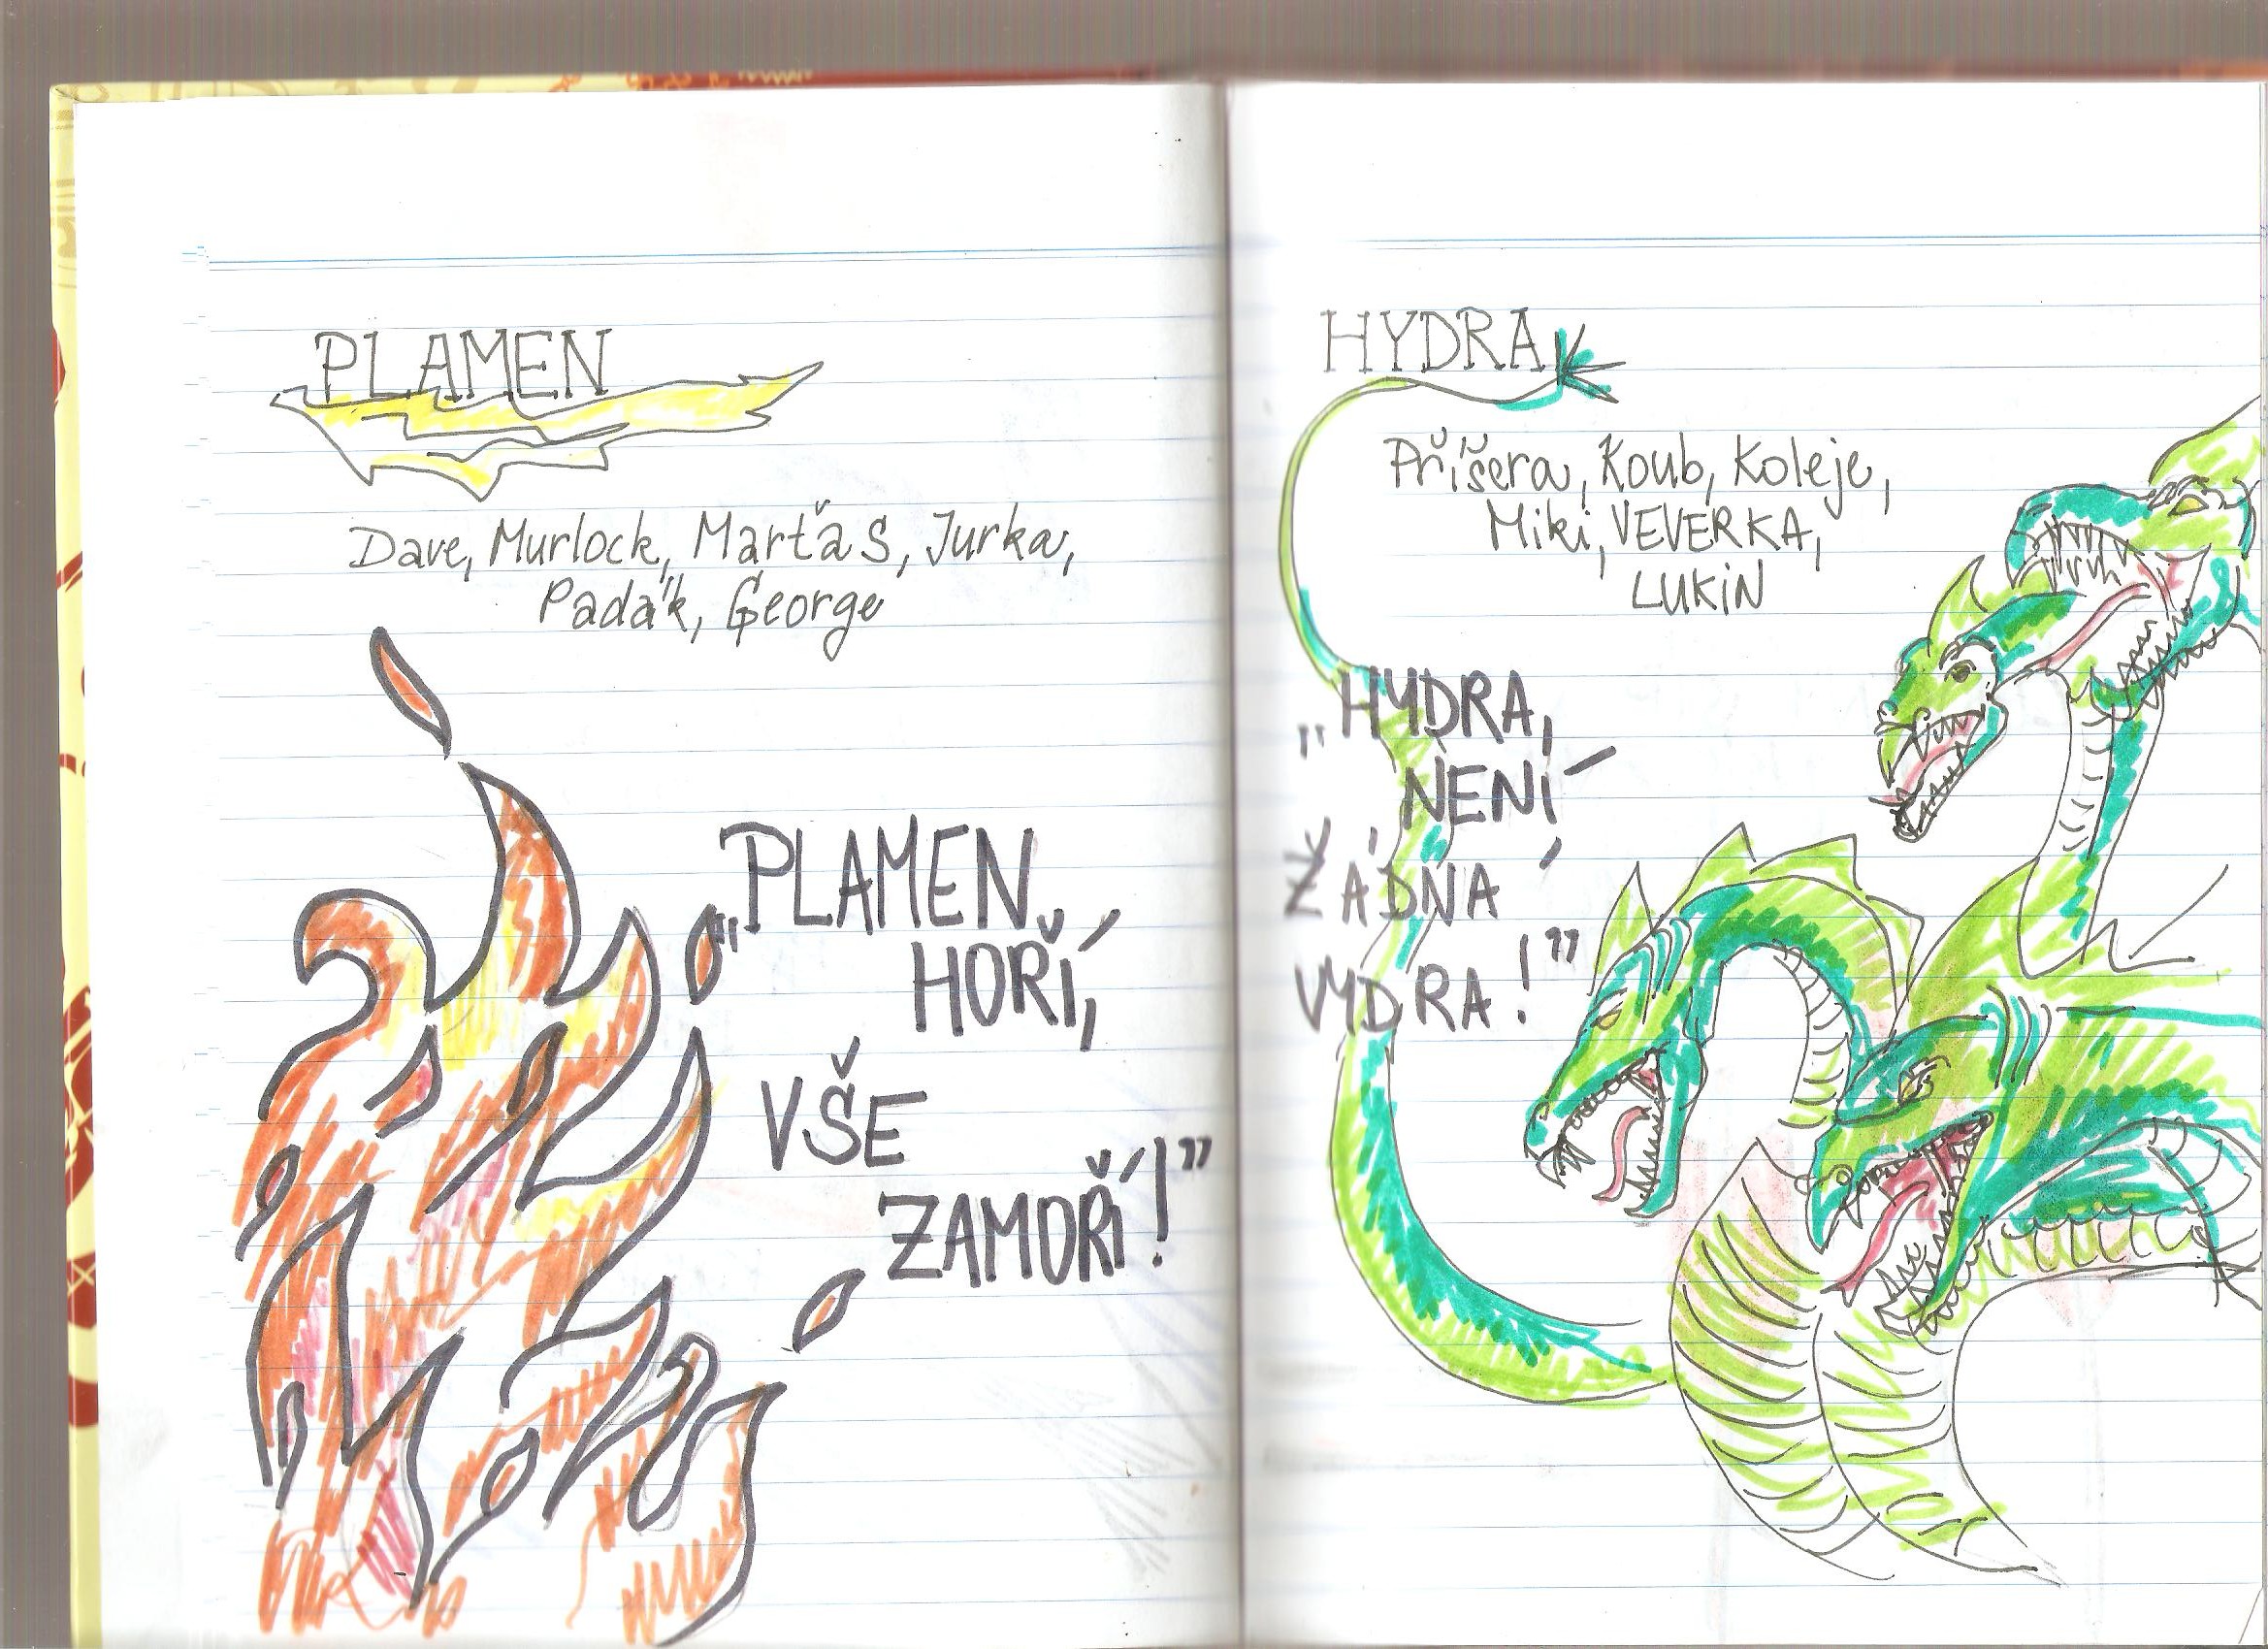 PLAMEN
Dave, Murlock, Marťas, Jurka,
Padák, George
„PLAMEN
HOŘÍ,
VŠE
ZAMOŘÍ!”
HYDRA
Příšera, Koub, Koleje,
Miki, VEVERKA,
LUKiN
„HYDRA,
NENÍ
ŽÁDNÁ
VYDRA!”